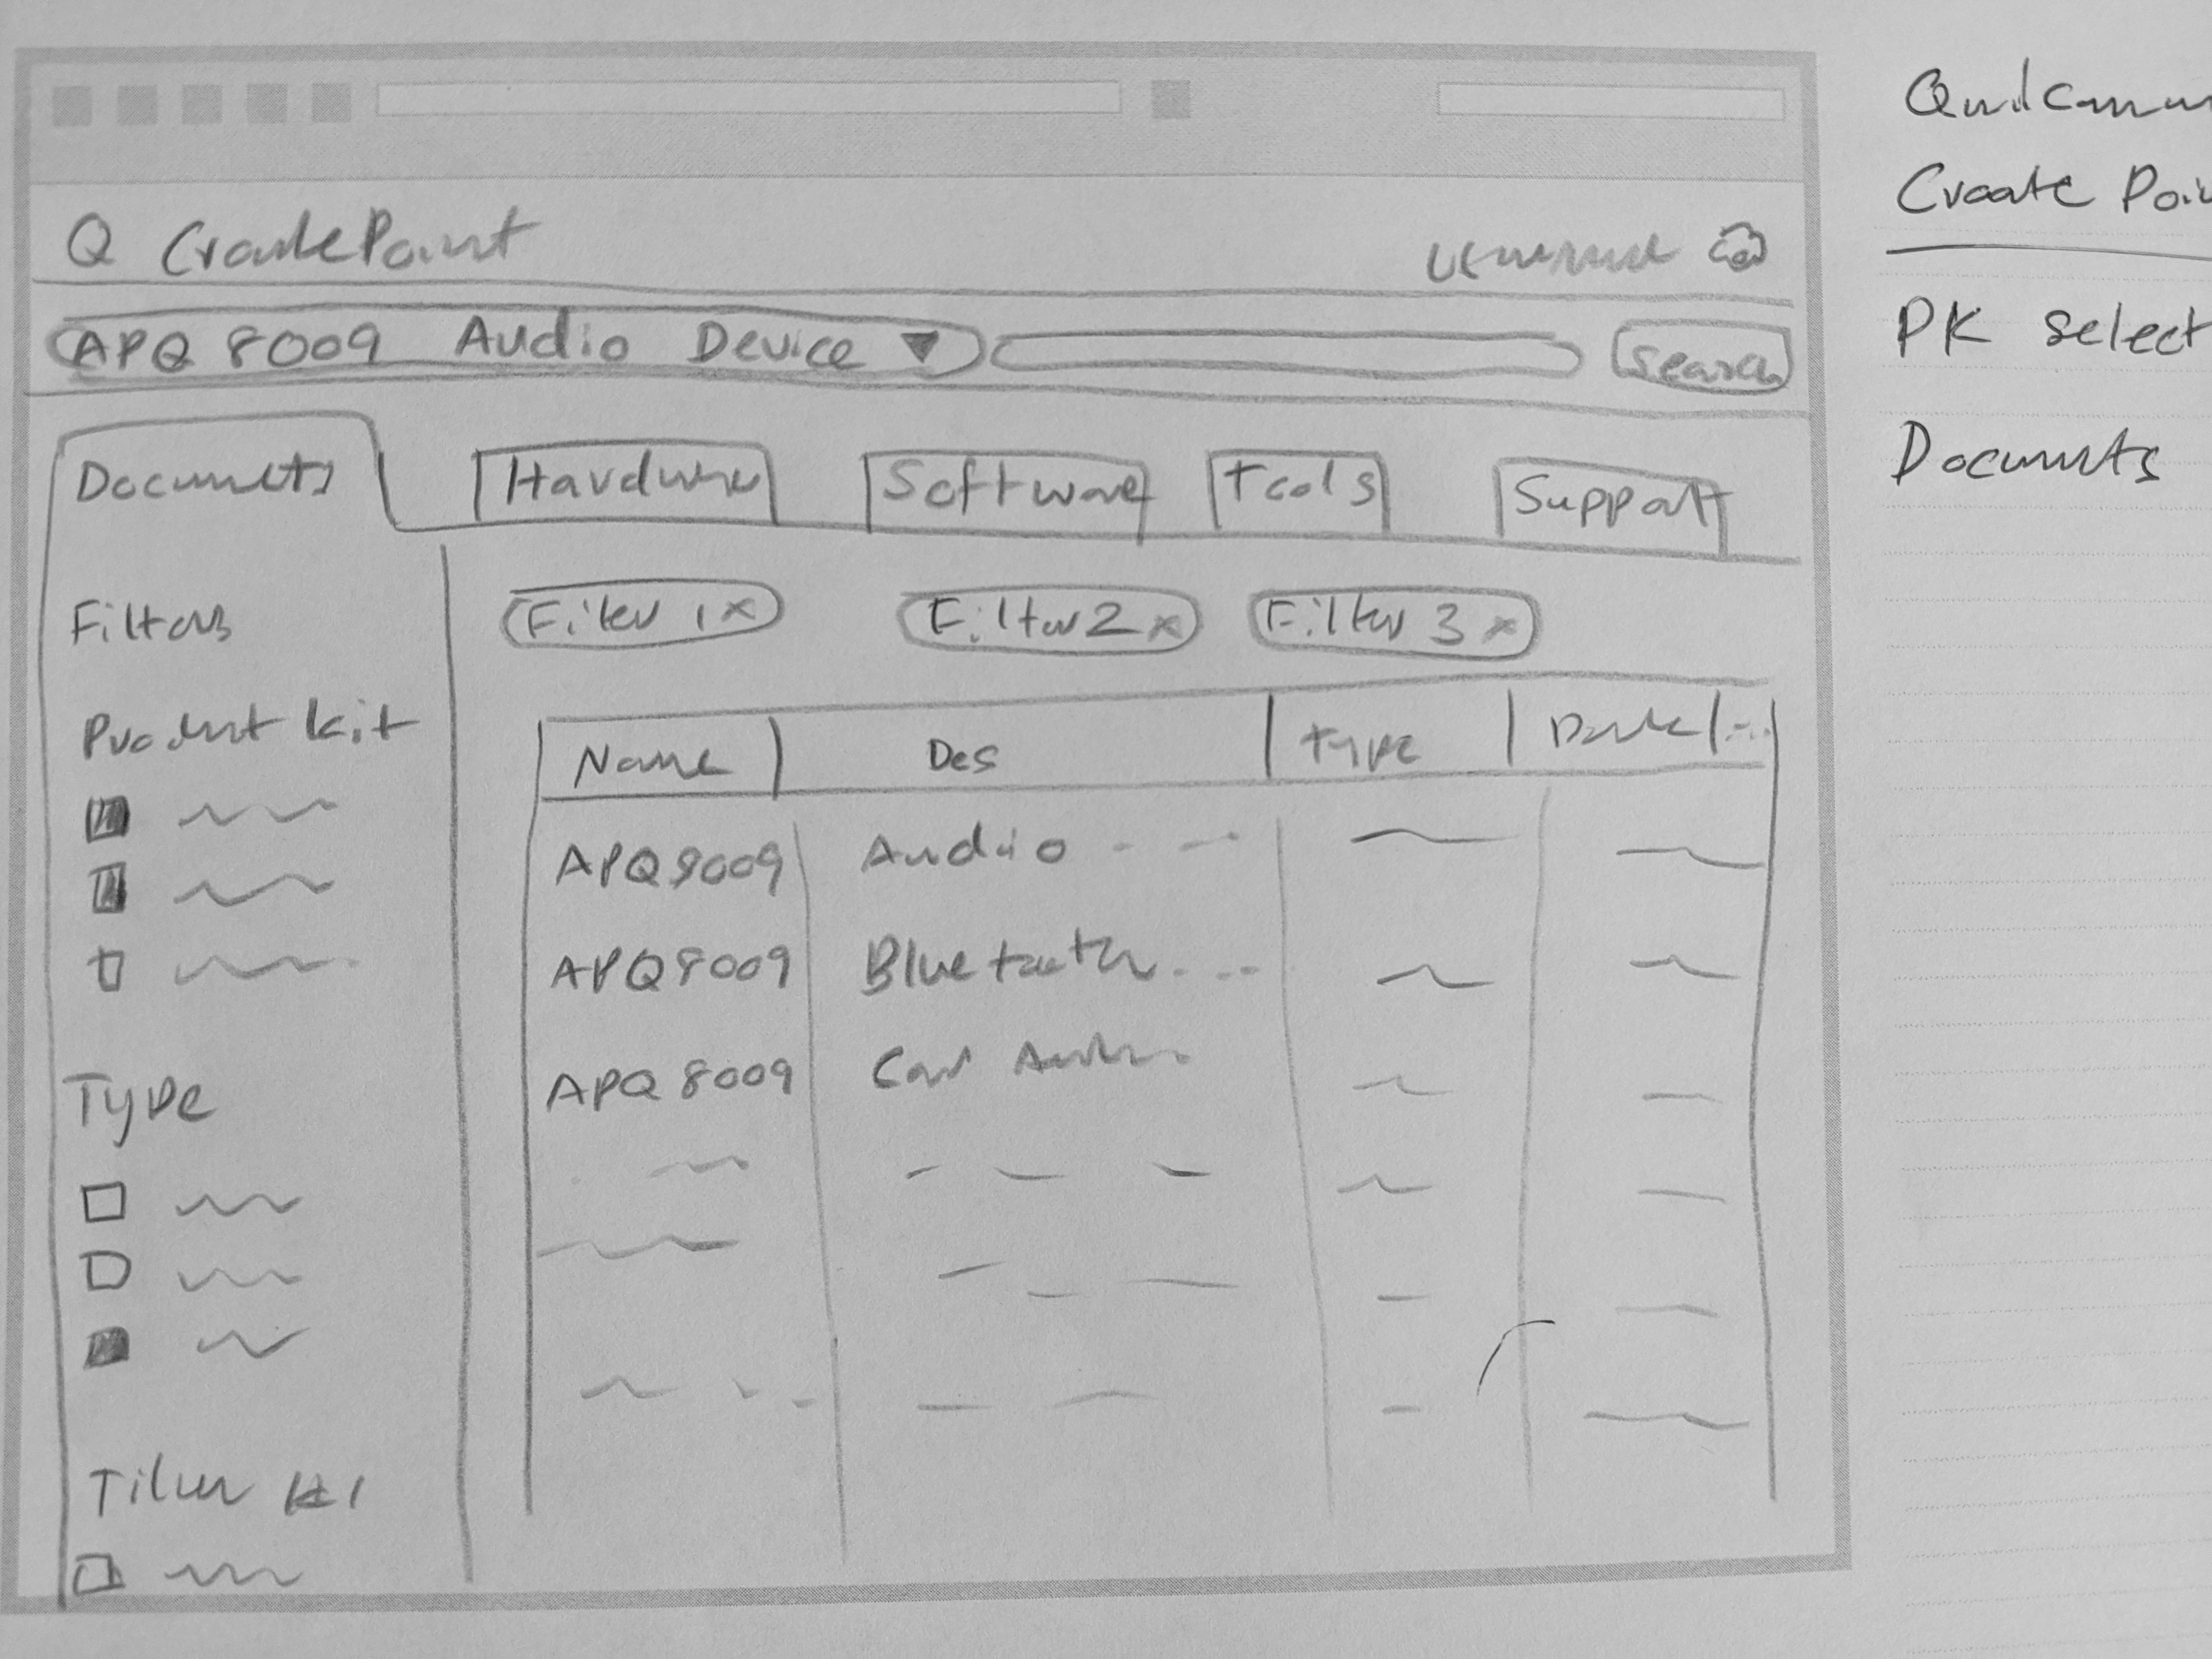 Q CreatePoint
username
APQ 8009 Audio Device
Search
Documents
Hardware
Software
Tools
Support
Filters
Filter 1 x
Filter 2 x
Filter 3 x
Product kit
Name
Des
Type
Date
...
APQ8009
Audio
APQ8009
Bluetooth....
APQ 8009
Car Audio..
Type
Qualcomm
Create Poin
PK select
Documents